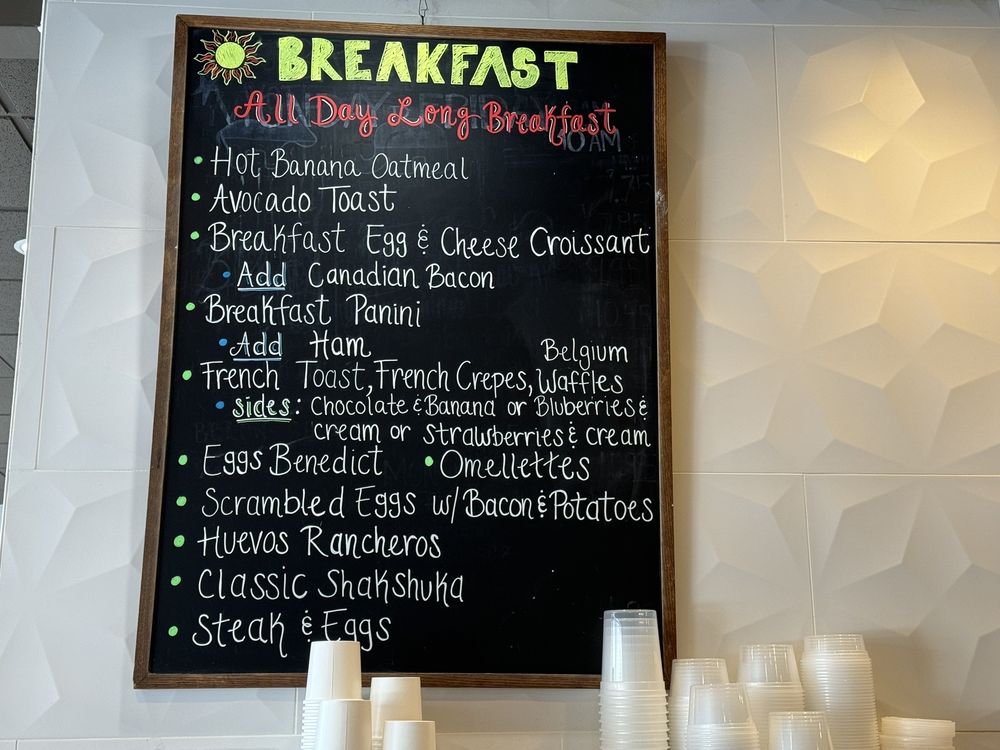 BREAKFAST
All Day Long Breakfast
10 AM
• Hot Banana Oatmeal
• Avocado Toast
• Breakfast Egg & Cheese Croissant
• Add Canadian Bacon
• Breakfast Panini
• Add Ham
Belgium
• French Toast, French Crepes, Waffles
• sides: Chocolate & Banana or Bluberries &
cream or strawberries & cream
• Eggs Benedict • Omellettes
• Scrambled Eggs w/ Bacon & Potatoes
• Huevos Rancheros
• Classic Shakshuka
• Steak & Eggs